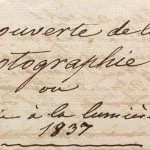 ouverte de la
otographie
ou
à la lumiè
1837